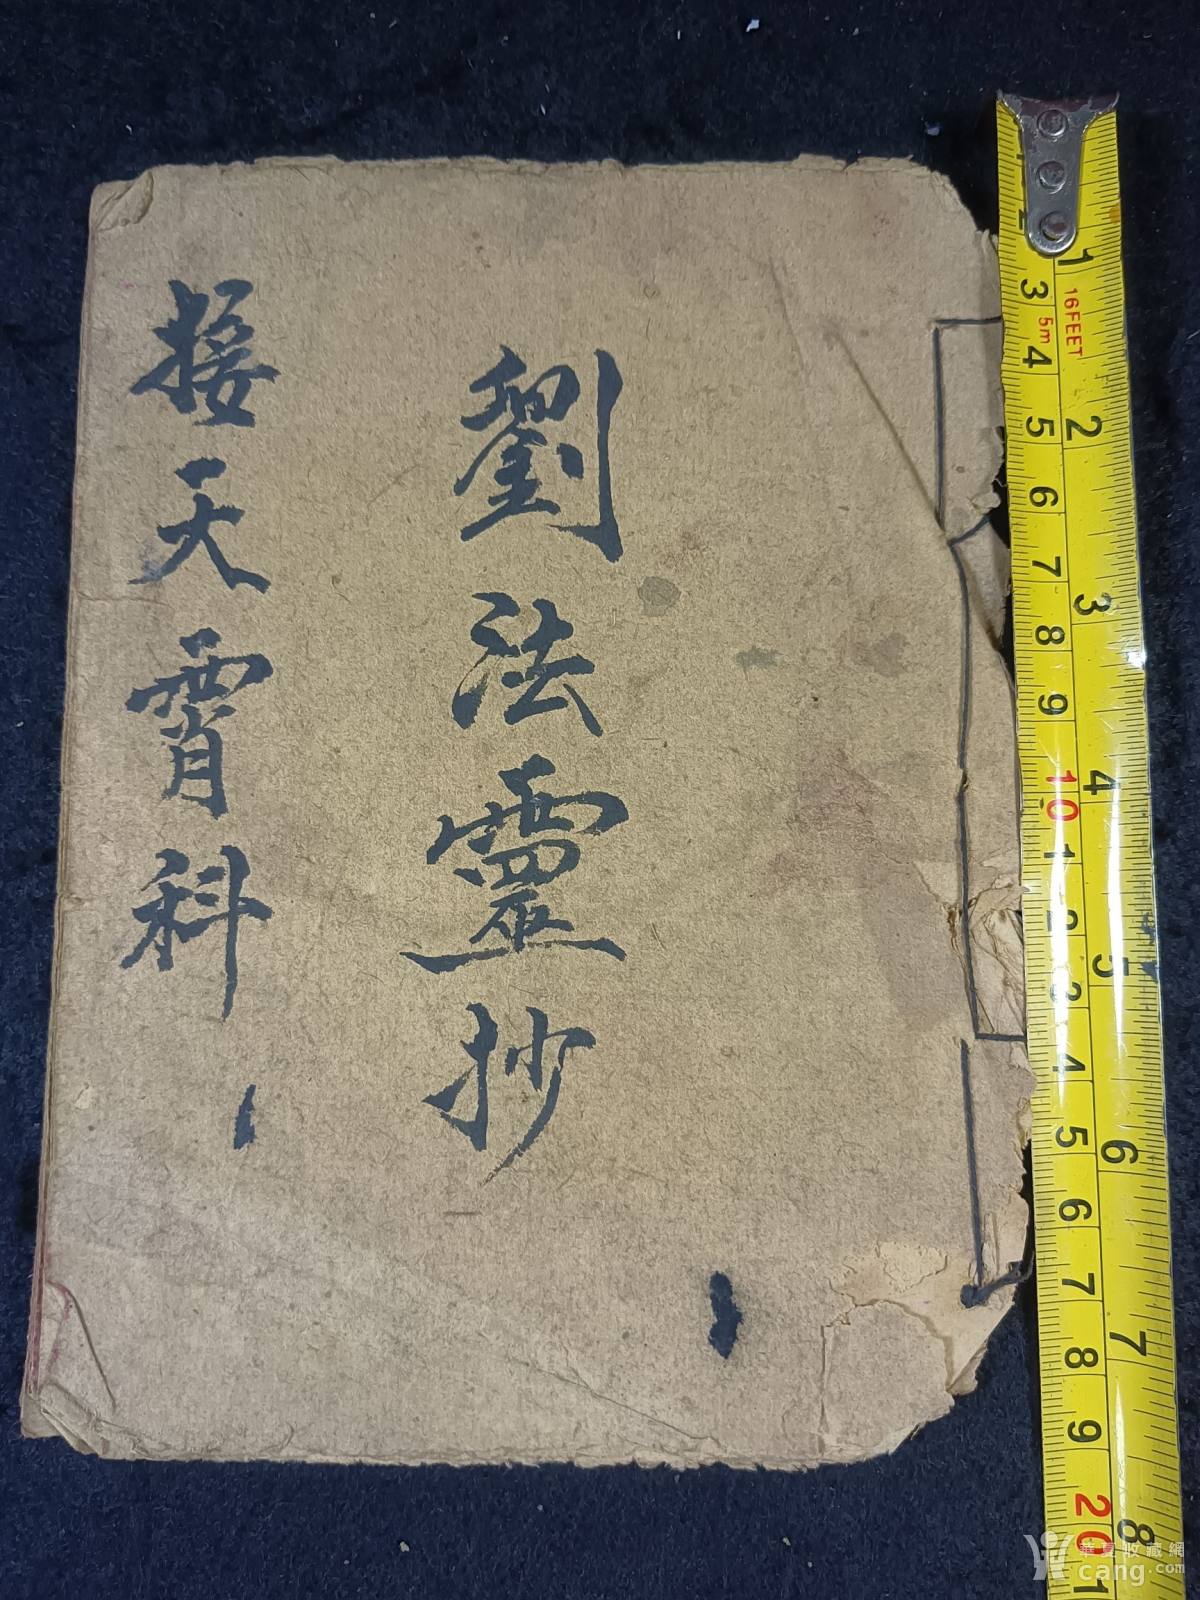 劉法靈抄
接天霄科
16FEET
5m
1
2
3
4
5
6
7
8
2
3
4
5
6
7
8
9
10
1
2
3
4
5
6
7
8
9
20
1
華夏收藏網
cang.com